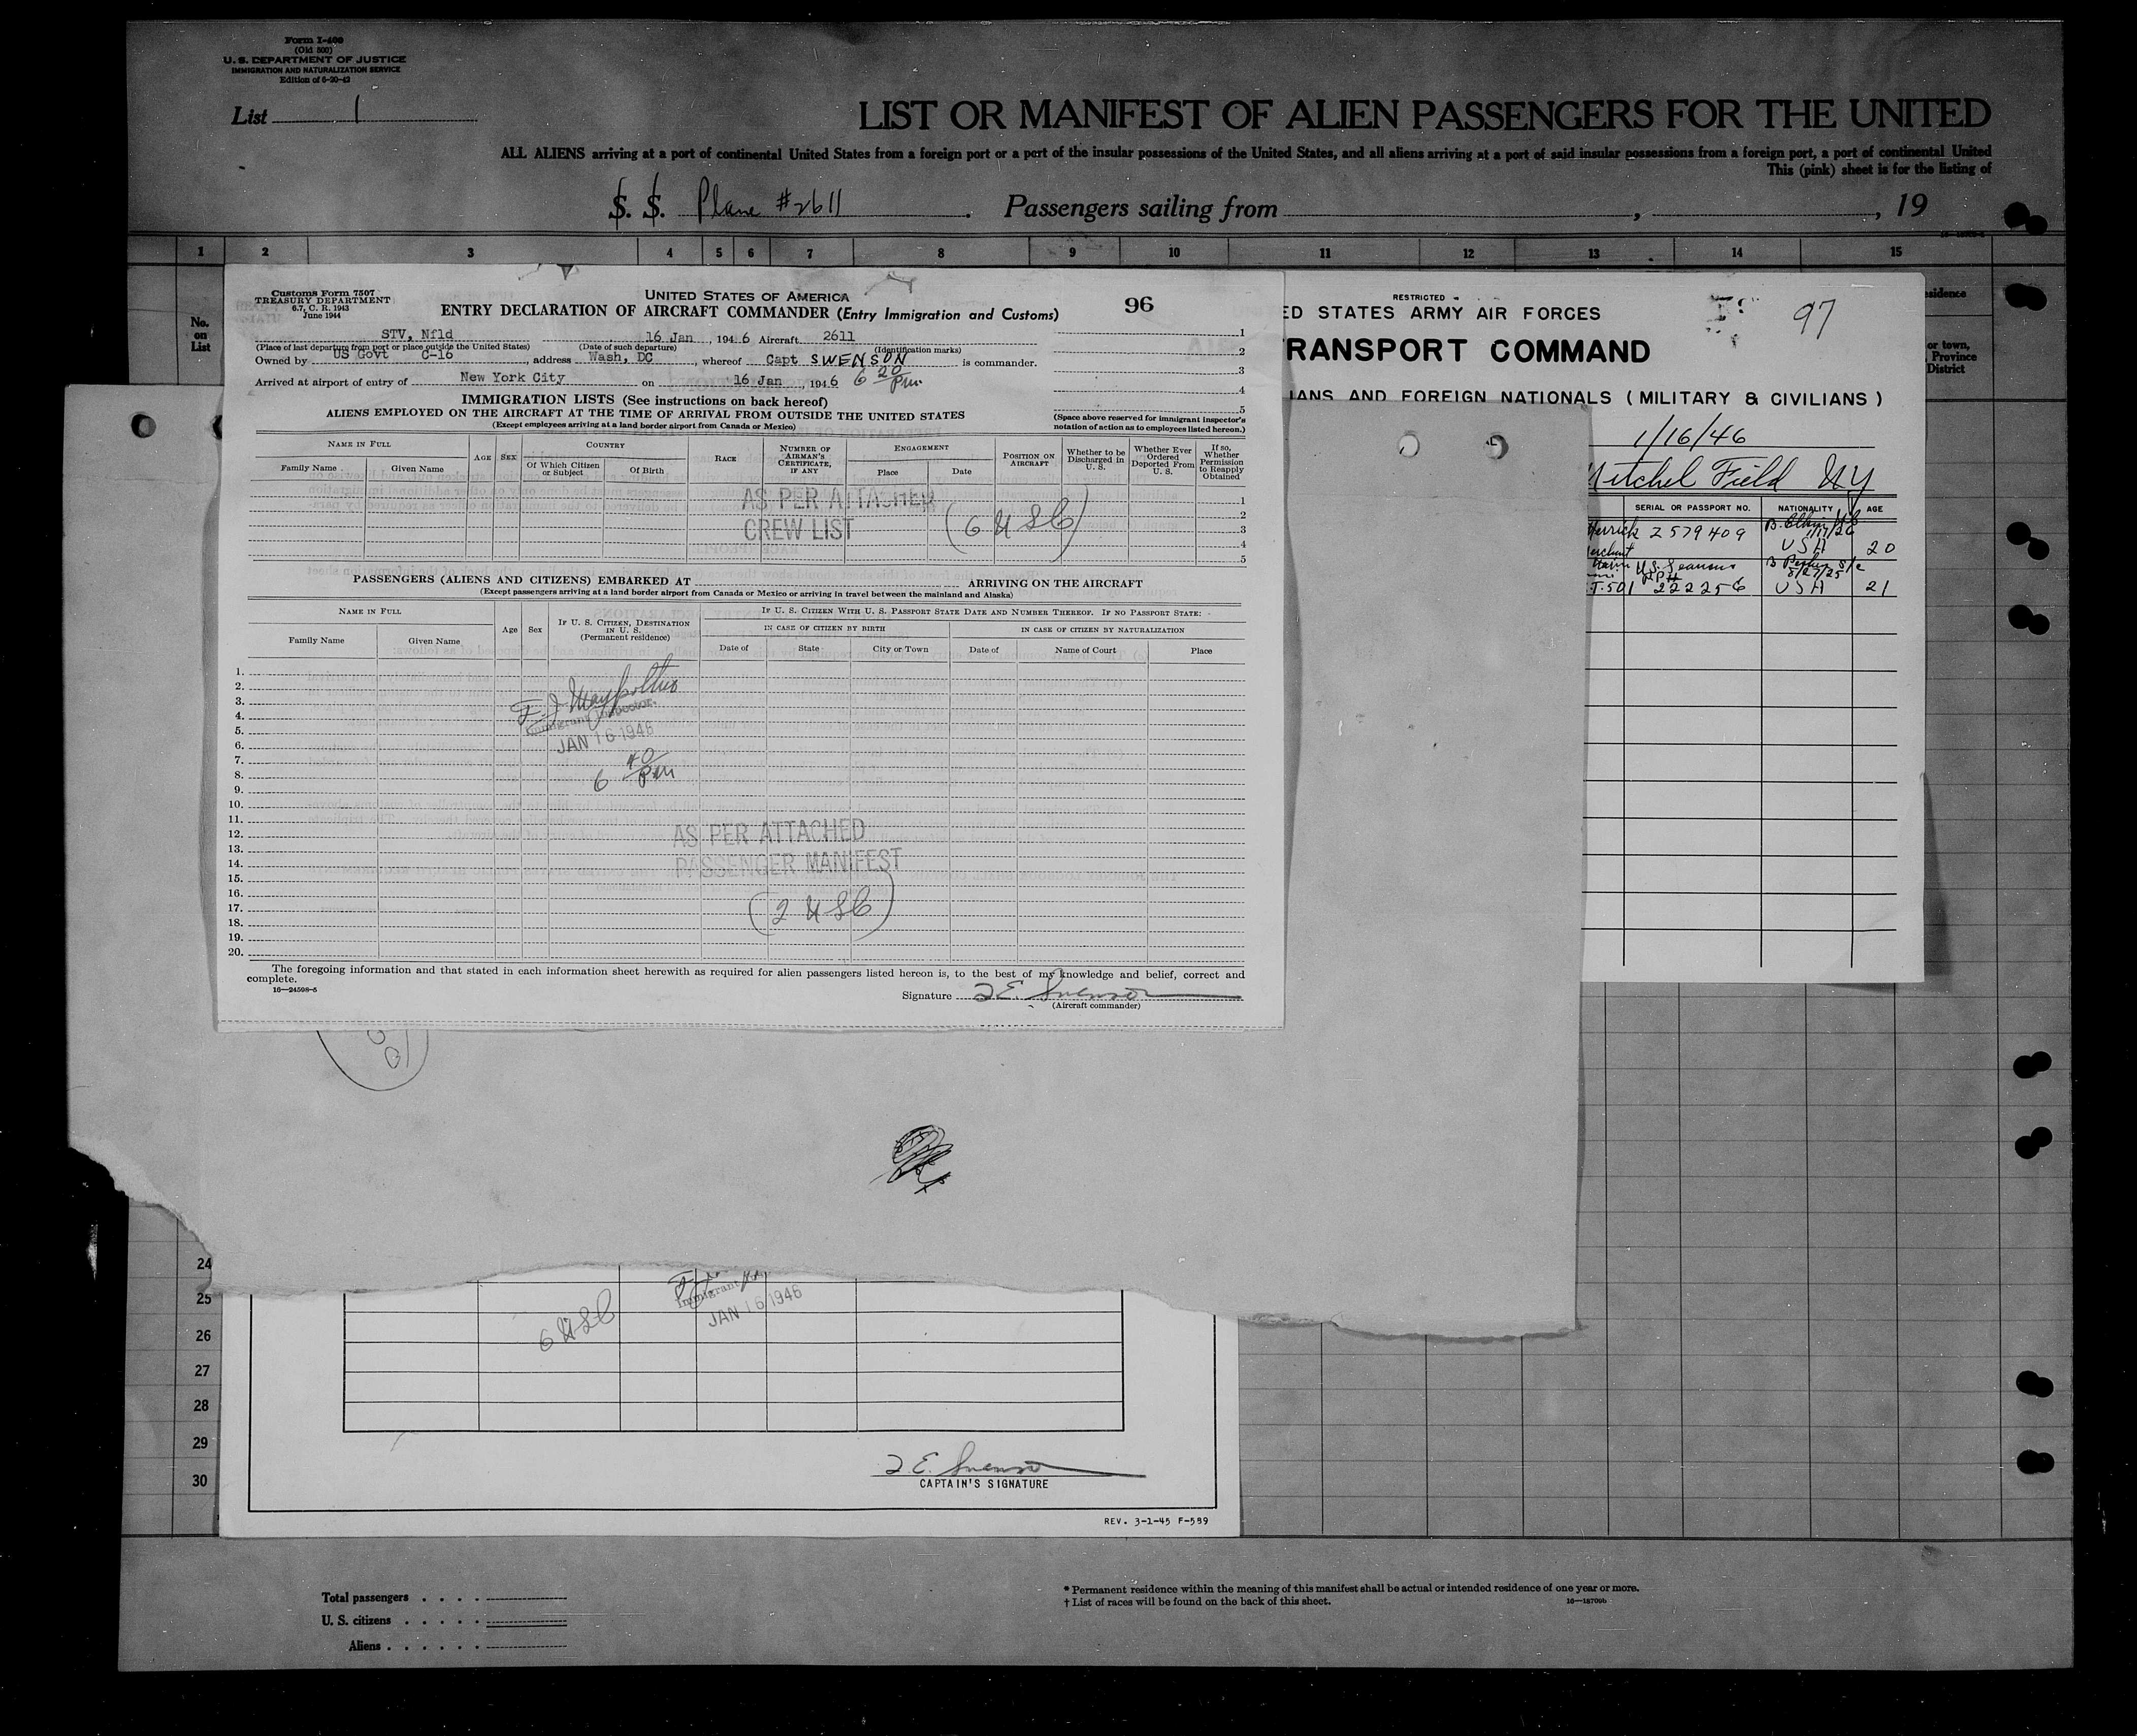 Form I-400
(Old 500)
U. S. DEPARTMENT OF JUSTICE
IMMIGRATION AND NATURALIZATION SERVICE
Edition of 6-20-42
List 1
LIST OR MANIFEST OF ALIEN PASSENGERS FOR THE UNITED
ALL ALIENS arriving at a port of continental United States from a foreign port or a port of the insular possessions of the United States, and all aliens arriving at a port of said insular possessions from a foreign port, a port of continental United
This (pink) sheet is for the listing of
S. S. Plane #2611. Passengers sailing from , , 19
1 2 3 4 5 6 7 8 9 10 11 12 13 14 15
No. on List
or town,
Province
District
Customs Form 7507
TREASURY DEPARTMENT
6.7, C. R. 1943
June 1944
UNITED STATES OF AMERICA
ENTRY DECLARATION OF AIRCRAFT COMMANDER (Entry Immigration and Customs)
96
STV, Nfld 16 Jan, 1946 Aircraft 2611
(Place of last departure from port or place outside the United States) (Date of such departure) (Identification marks)
Owned by US Govt C-16, address Wash, DC, whereof Capt SWENSON is commander.
Arrived at airport of entry of New York City on 16 Jan, 1946 6 20 pm.
1
2
3
4
5
(Space above reserved for immigrant inspector's
notation of action as to employees listed hereon.)
IMMIGRATION LISTS (See instructions on back hereof)
ALIENS EMPLOYED ON THE AIRCRAFT AT THE TIME OF ARRIVAL FROM OUTSIDE THE UNITED STATES
(Except employees arriving at a land border airport from Canada or Mexico)
NAME IN FULL
Family Name Given Name
AGE SEX
COUNTRY
Of Which Citizen or Subject Of Birth
RACE
NUMBER OF AIRMAN'S CERTIFICATE, IF ANY
ENGAGEMENT
Place Date
POSITION ON AIRCRAFT
Whether to be Discharged in U. S.
Whether Ever Ordered Deported From U. S.
If so, Whether Permission to Reapply Obtained
AS PER ATTACHED
CREW LIST
(6 USC)
1
2
3
4
5
PASSENGERS (ALIENS AND CITIZENS) EMBARKED AT ARRIVING ON THE AIRCRAFT
(Except passengers arriving at a land border airport from Canada or Mexico or arriving in travel between the mainland and Alaska)
NAME IN FULL
Family Name Given Name
Age Sex
IF U. S. CITIZEN, DESTINATION IN U. S. (Permanent residence)
IF U. S. CITIZEN WITH U. S. PASSPORT STATE DATE AND NUMBER THEREOF. IF NO PASSPORT STATE:
IN CASE OF CITIZEN BY BIRTH
IN CASE OF CITIZEN BY NATURALIZATION
Date of State City or Town Date of Name of Court Place
1.
2.
3.
4.
5.
6.
7.
8.
9.
10.
11.
12.
13.
14.
15.
16.
17.
18.
19.
20.
Immigrant Inspector.
JAN 16 1946
6 40 pm
AS PER ATTACHED
PASSENGER MANIFEST
(2 USC)
The foregoing information and that stated in each information sheet herewith as required for alien passengers listed hereon is, to the best of my knowledge and belief, correct and
complete.
16—24598-5
Signature E. Swenson
(Aircraft commander)
RESTRICTED
97
ED STATES ARMY AIR FORCES
RANSPORT COMMAND
IANS AND FOREIGN NATIONALS (MILITARY & CIVILIANS)
1/16/46
Mitchel Field NY
SERIAL OR PASSPORT NO. NATIONALITY AGE
Herrick Z 579409
USA 20
U.S. Seamans
222256 USA 21
24
25
26
27
28
29
30
6 USC
Immigrant
JAN 16 1946
E. Swenson
CAPTAIN'S SIGNATURE
REV. 3-1-45 F-589
Total passengers
U. S. citizens
Aliens
* Permanent residence within the meaning of this manifest shall be actual or intended residence of one year or more.
† List of races will be found on the back of this sheet.